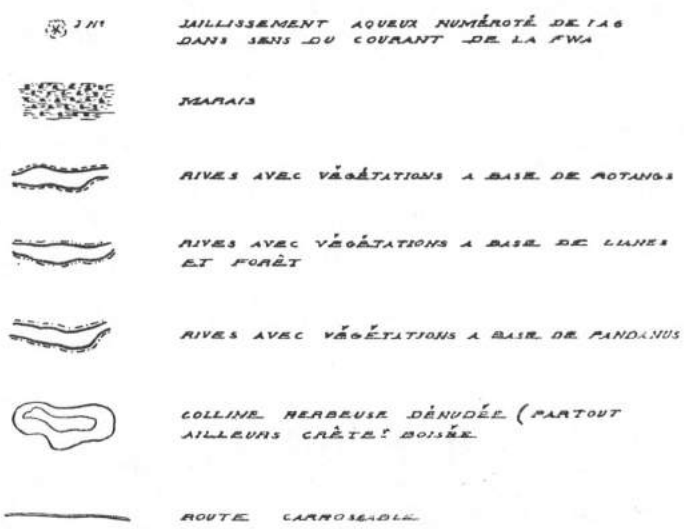 3 Nº JAILLISSEMENT AQUEUX NUMÉROTÉ DE 1 A 6
DANS SENS DU COURANT DE LA FWA
MARAIS
RIVES AVEC VÉGÉTATIONS A BASE DE ROTANGS
RIVES AVEC VÉGÉTATIONS A BASE DE LIANES
ET FORÊT
RIVES AVEC VÉGÉTATIONS A BASE DE PANDANUS
COLLINE HERBEUSE DÉNUDÉE (PARTOUT
AILLEURS CRÊTES BOISÉE
ROUTE CARROSEABLE